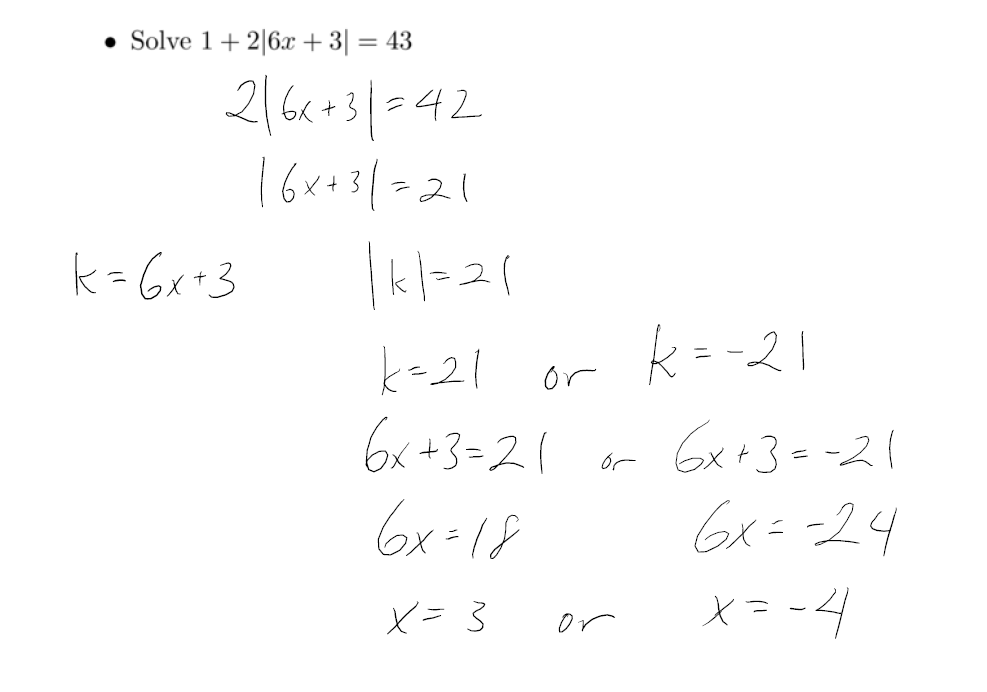 • Solve 1 + 2|6x + 3| = 43
2|6x+3|=42
|6x+3|=21
k=6x+3 |k|=21
k=21 or k=-21
6x+3=21 or 6x+3=-21
6x=18 6x=-24
x=3 or x=-4